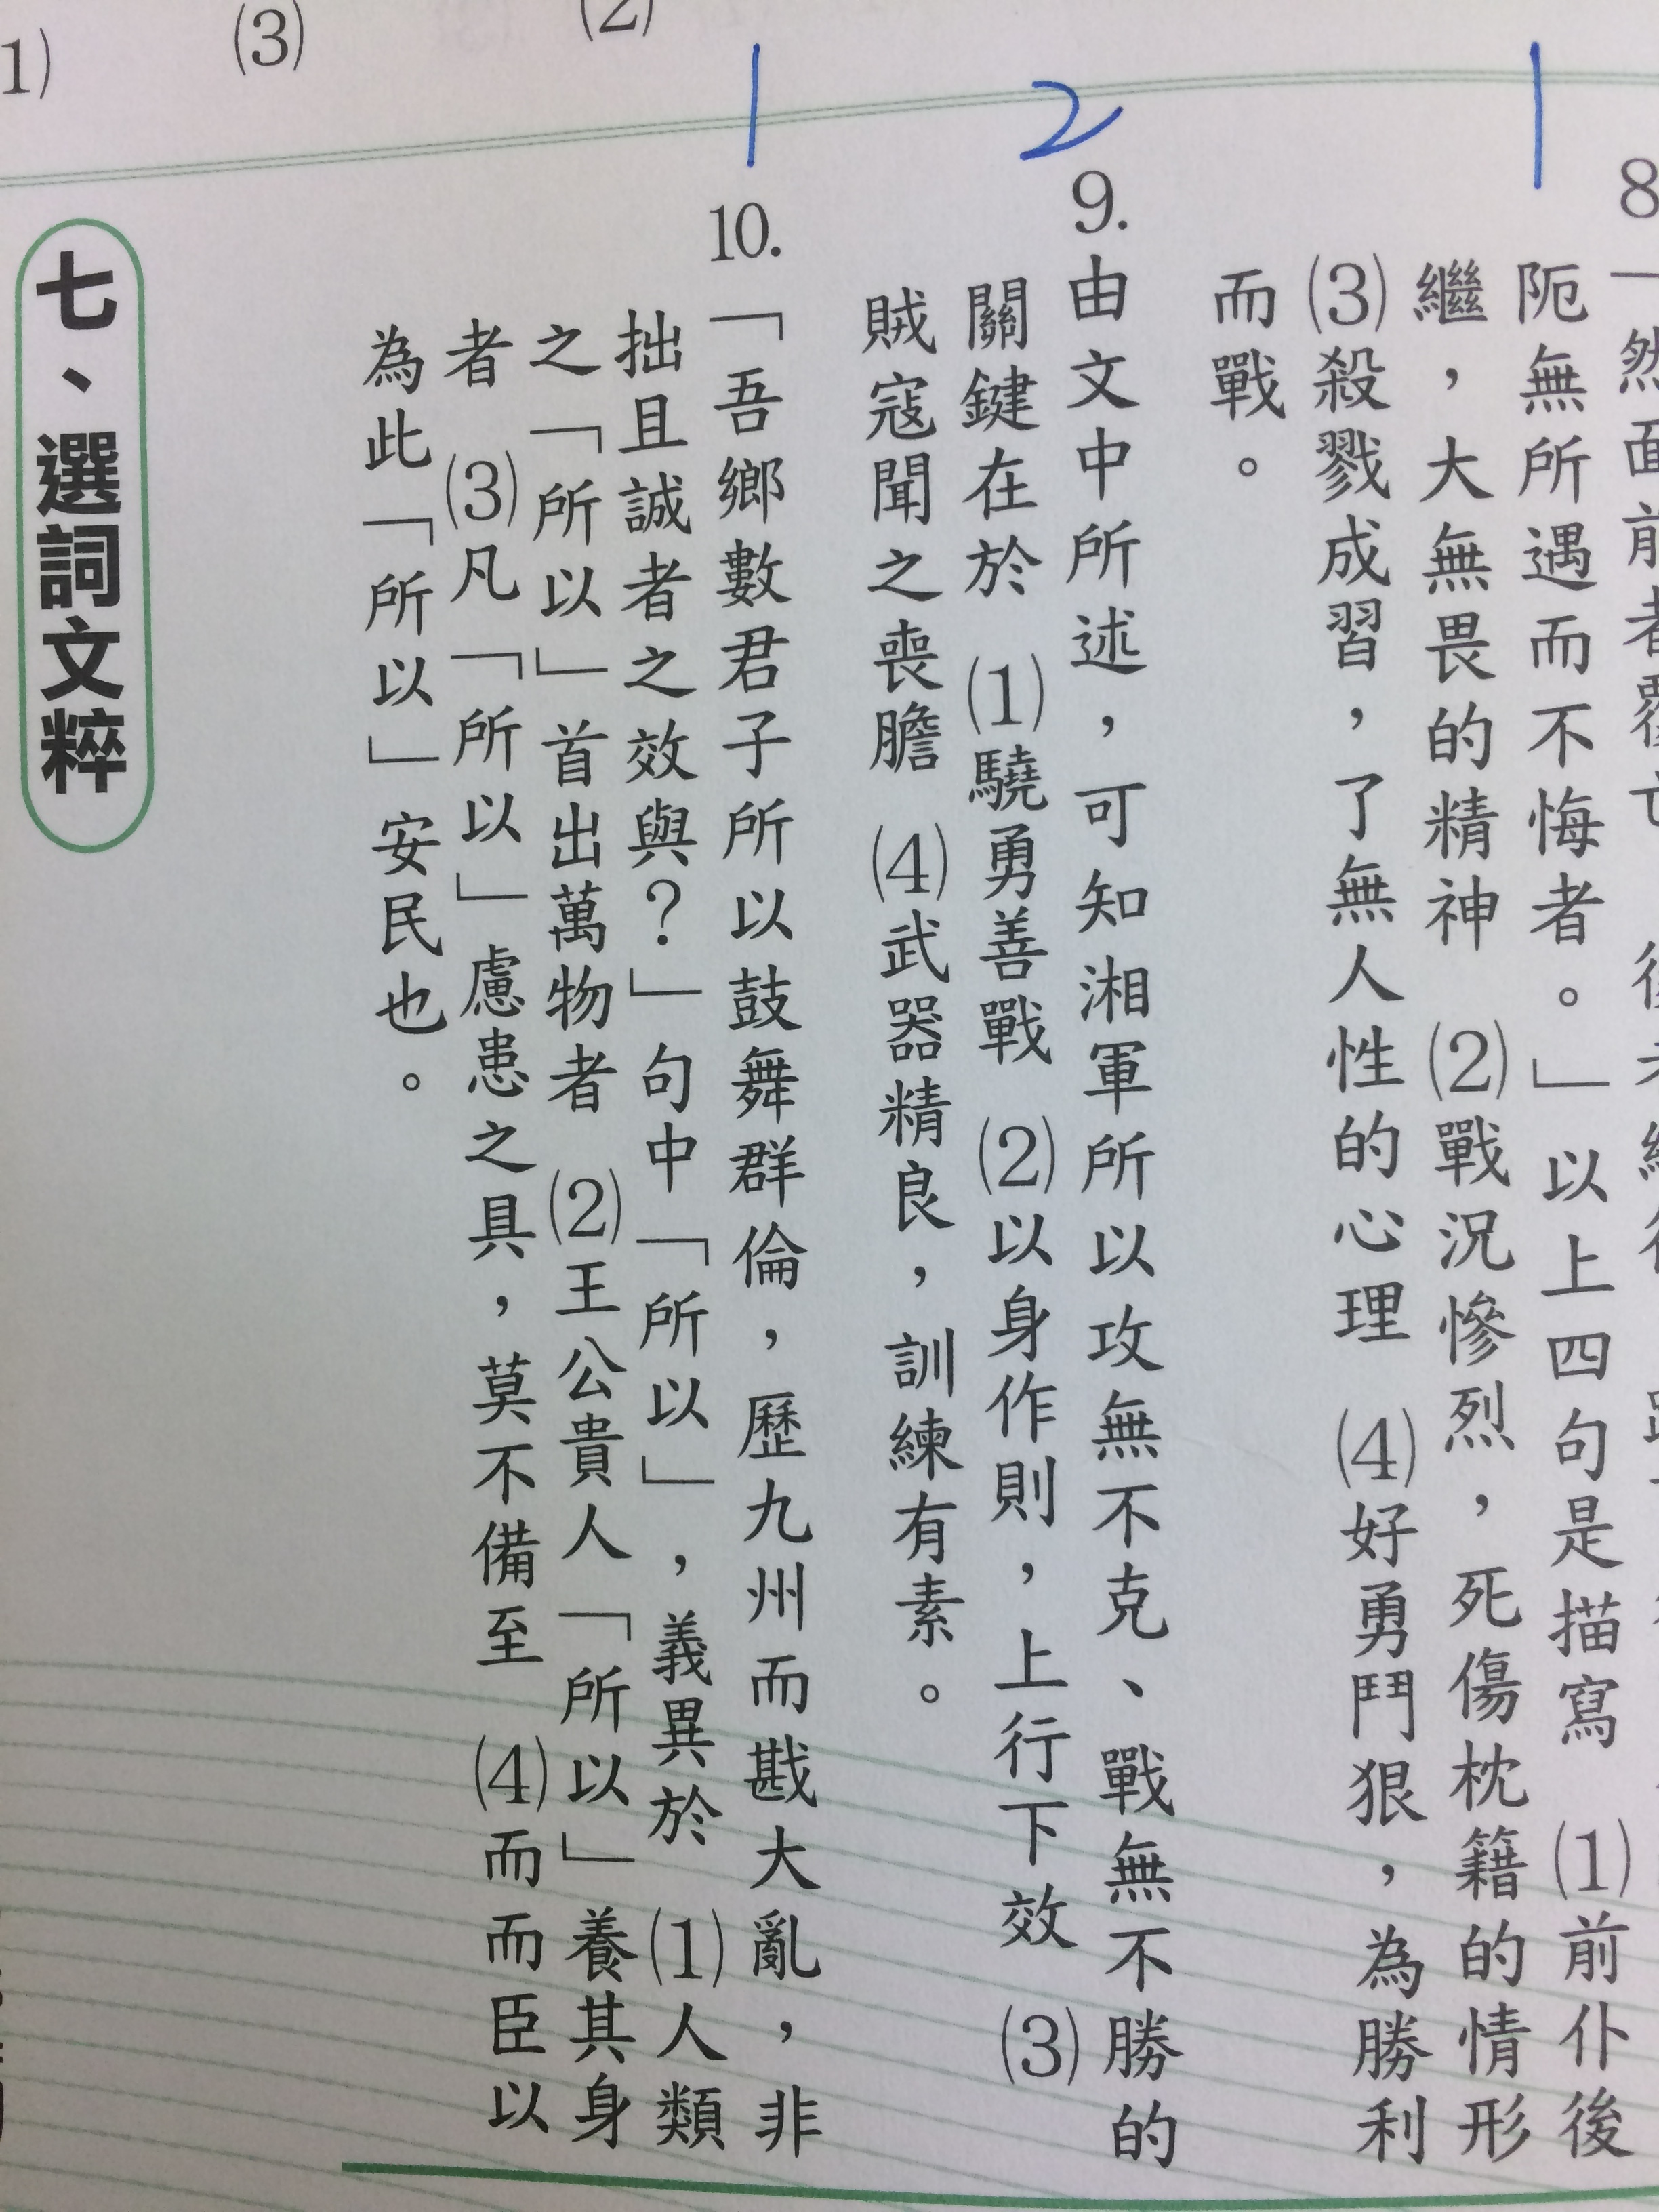 8
「然面前者覆亡
阨無所遇而不悔者。」以上四句是描寫 (1)前仆後
繼，大無畏的精神 (2)戰況慘烈，死傷枕籍的情形
(3)殺戮成習，了無人性的心理 (4)好勇鬥狠，為勝利
而戰。
1
9.由文中所述，可知湘軍所以攻無不克、戰無不勝的
關鍵在於 (1)驍勇善戰 (2)以身作則，上行下效 (3)
賊寇聞之喪膽 (4)武器精良，訓練有素。
2
10.「吾鄉數君子所以鼓舞群倫，歷九州而戡大亂，非
拙且誠者之效與？」句中「所以」，義異於 (1)人類
之「所以」首出萬物者 (2)王公貴人「所以」養其身
者 (3)凡「所以」慮患之具，莫不備至 (4)而而臣以
為此「所以」安民也。
1
(2)
(3)
1)
七、選詞文粹